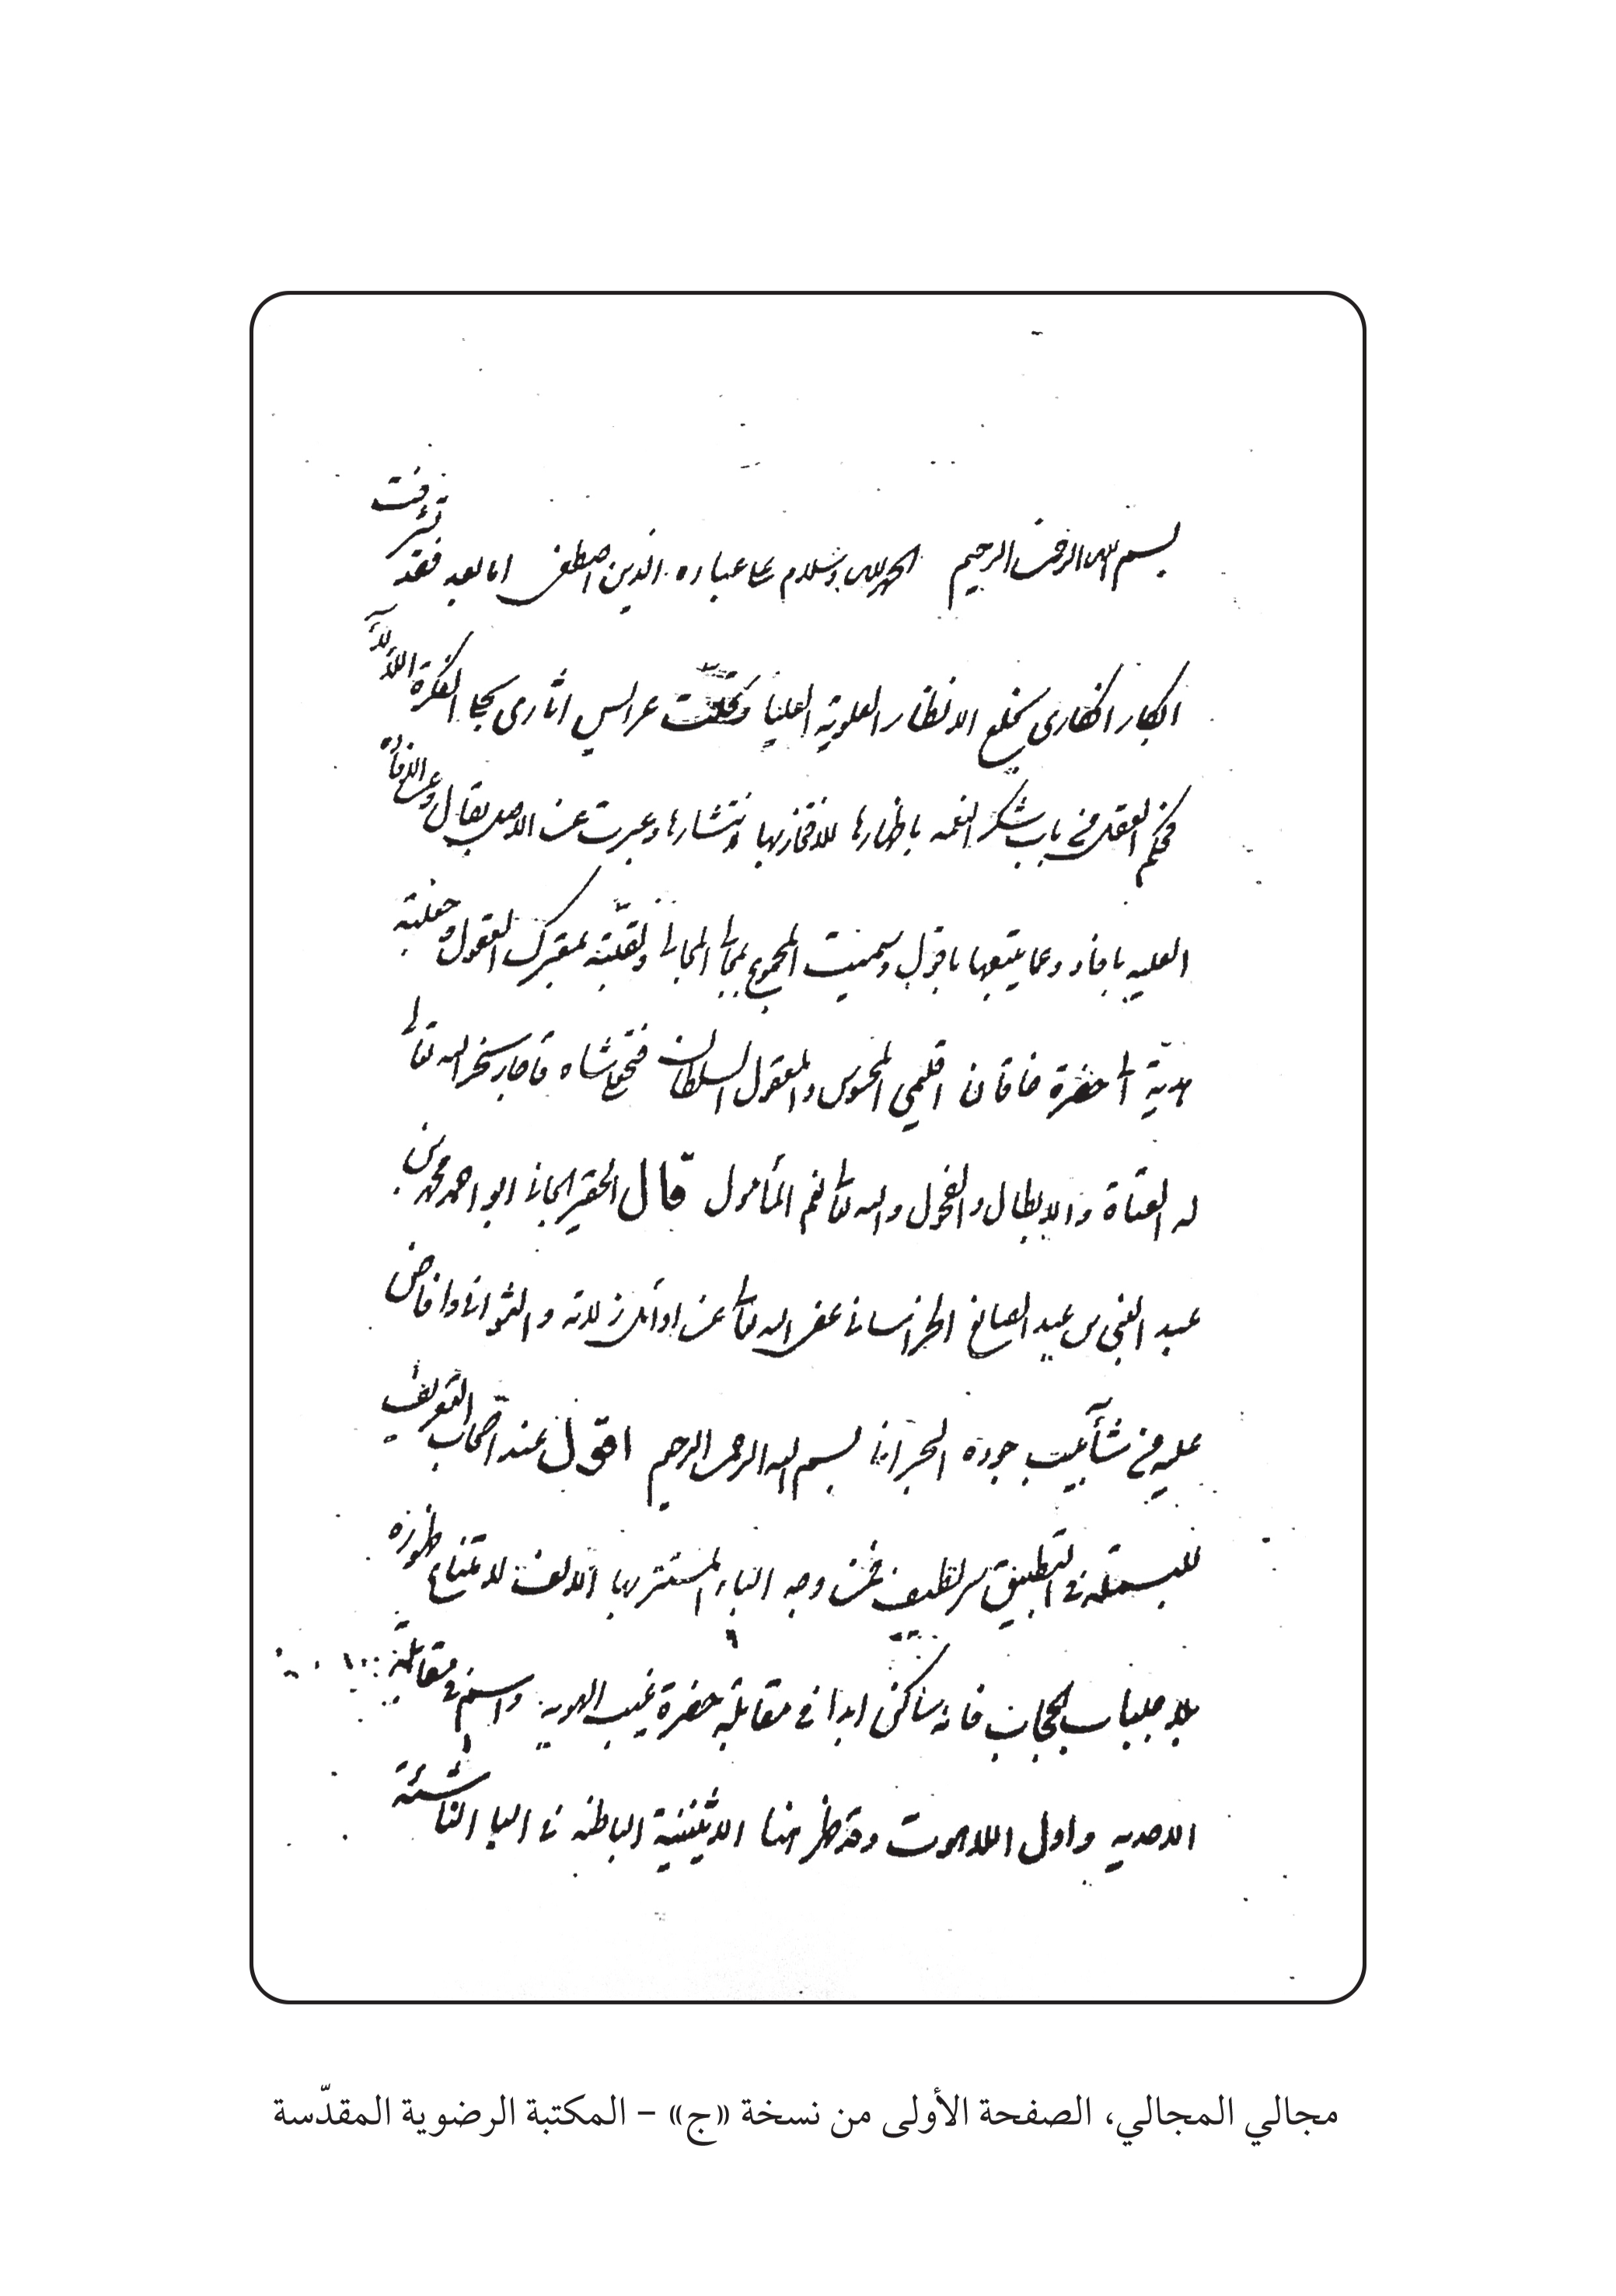 بسم الله الرحمن الرحيم الحمد لله وسلام على عباده الذين اصطفى اما بعد فقد تشرفت
ابكار افكارى بخلع الانظار العلوية العليا عرايس اثارى الفكرة
فحكم العقل فى باب شكر النعمه باظهارها للافتخار بها وانتشارها وعبرت عن الاصل بقال وعن
العليه بافاد وعما يتبعها باقول وسميت المجموع بمجالى المجالى ولقبته بمعترك العقول وجعلته
هدية الى حضرة خاقان اقليمى المحسوس والمعقول السلطان فتحعلى شاه قاجار سخر الله تعالى
له العتاة والابطال والفحول والله تعالى نعم المأمول قال الحقير الجانى ابو احمد محمد بن
عبد الغنى بن عبد الصانع الخراسانى غفر الله تعالى عن اوائل زلاته والثوانى وافاض
عليه من شآبيب جوده الجر بسم الله الرحمن الرحيم اقول عند اصحاب
للبسمله فى التطبيق سر لطيف فمن وجه الباء المستتر بها الالف لامتناع ظهوره
بلا جلباب الحجاب فانه ساكن ابدا فى مقابلة حضرة غيب الهويه واسم فى مقابلة
الاحديه واول اللاهوت وقد ظهر هنا الاثنينية الباطنه فى البا الناشئة
مجالي المجالي، الصفحة الأولى من نسخة «ج» – المكتبة الرضوية المقدّسة